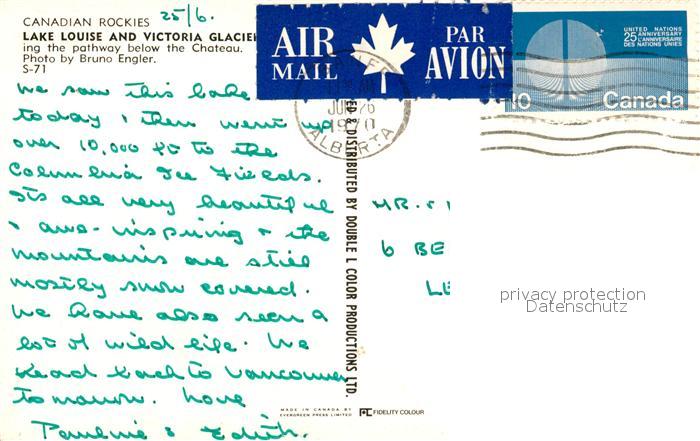 CANADIAN ROCKIES 25/6.
LAKE LOUISE AND VICTORIA GLACIER
ing the pathway below the Chateau.
Photo by Bruno Engler.
S-71
We saw this lake
today & then went up
over 10,000 ft to the
Columbia Ice Fields.
Its all very beautiful
& awe-inspiring & the
mountains are still
mostly snow covered.
We have also seen a
lot of wild life. We
head back to Vancouver
tomorrow. Love
Pauline & Edith.
AIR MAIL
PAR AVION
JUN 26
1970
ALBERTA
UNITED NATIONS
25TH ANNIVERSARY
L'ANNIVERSAIRE
DES NATIONS UNIES
10 Canada
ED & DISTRIBUTED BY DOUBLE L COLOR PRODUCTIONS LTD.
MR. &
6 BE
LE
privacy protection
Datenschutz
MADE IN CANADA BY
EVERGREEN PRESS LIMITED
FIDELITY COLOUR